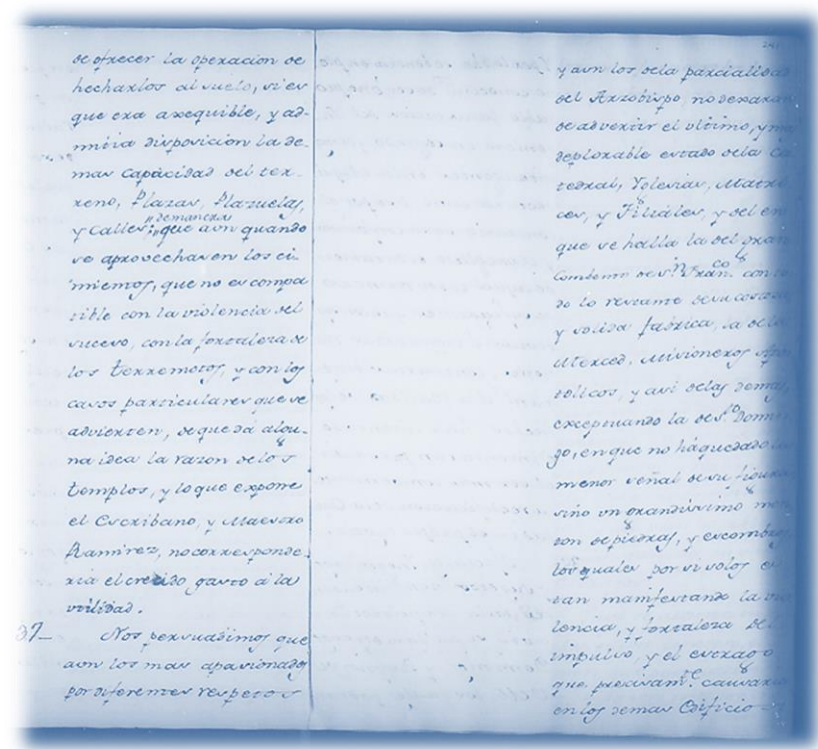 de ofrecer la operacion de
hecharlos al suelo, si es
que era asequible, y ad-
mitia disposicion la de-
mas capacidad del ter-
reno, Plazas, Plazuelas,
y Calles; demanera
que aun quando
se aprovechasen los ci-
mientos, que no es compa
tible con la violencia del
suceso, con la fortaleza de
los terremotos, y con los
casos particulares que se
advierten, de que dá algu-
na idea la razon de los
templos, y lo que expone
el Escribano, y Maestro
Ramirez, no corresponde-
ria el crecido gasto á la
utilidad.
37_ Nos persuadimos que
aun los mas apasionados
por diferentes respetos
241
y aun los dela parcialidad
del Arzobispo, no dexaran
de advertir el ultimo, y
deplorable estado dela Ca
tedral, Yglesias, Matri
ces, y Filiales, y del en
que se halla la del gran
Combento de Sn. Francco. con to
do lo restante de su costosa
y solida fabrica, la de la
Merced, Misioneros Apos
tolicos, y asi delas demas,
exceptuando la de Sto. Domin
go, en que no há quedado la
menor señal de su figura
sino un grandissimo mon
ton de piedras, y escombros,
los quales por si solos es
tan manifestando la vio
lencia, y fortaleza del
impulso, y el estrago
que precisamte. causaria
en los demas Edificios